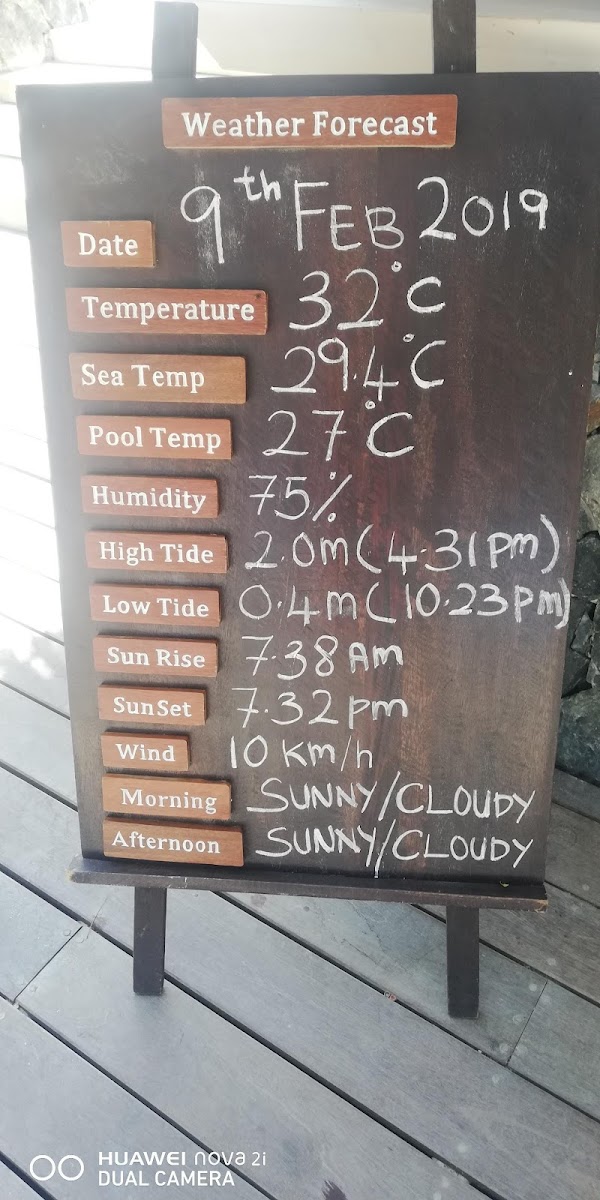 Weather Forecast
Date 9th FEB 2019
Temperature 32°C
Sea Temp 29.4°C
Pool Temp 27°C
Humidity 75%
High Tide 2.0m (4.31pm)
Low Tide 0.4m (10.23pm)
Sun Rise 7.38 Am
Sun Set 7.32 pm
Wind 10 Km/h
Morning SUNNY/CLOUDY
Afternoon SUNNY/CLOUDY
HUAWEI nova 2i
DUAL CAMERA